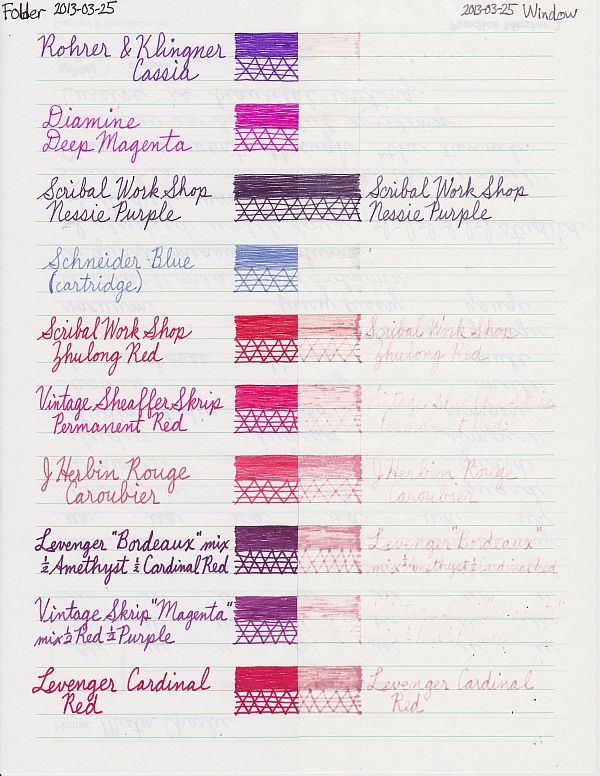 Folder 2013-03-25
2013-03-25 Window
Rohrer & Klingner
Cassia
Diamine
Deep Magenta
Scribal Work Shop
Nessie Purple
Scribal Work Shop
Nessie Purple
Schneider Blue
(cartridge)
Scribal Work Shop
Zhulong Red
Scribal Work Shop
Zhulong Red
Vintage Sheaffer Skrip
Permanent Red
Vintage Sheaffer Skrip
Permanent Red
J Herbin Rouge
Caroubier
J Herbin Rouge
Caroubier
Levenger "Bordeaux" mix
½ Amethyst ½ Cardinal Red
Levenger "Bordeaux"
mix ½ Amethyst ½ Cardinal Red
Vintage Skrip "Magenta"
mix ½ Red ½ Purple
Levenger Cardinal
Red
Levenger Cardinal
Red